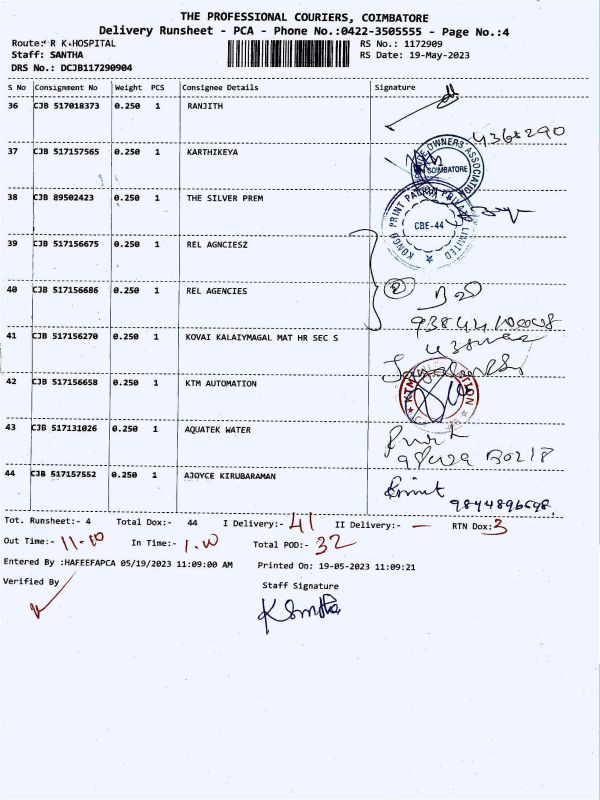 THE PROFESSIONAL COURIERS, COIMBATORE
Delivery Runsheet - PCA - Phone No.:0422-3505555 - Page No.:4
Route: R K HOSPITAL RS No.: 1172909
Staff: SANTHA RS Date: 19-May-2023
DRS No.: DCJB117290904
S No Consignment No Weight PCS Consignee Details Signature
36 CJB 517018373 0.250 1 RANJITH
4368290
37 CJB 517157565 0.250 1 KARTHIKEYA
OWNERS ASSOCIATION
COIMBATORE
38 CJB 89502423 0.250 1 THE SILVER PREM
PRIVATE LIMITED
CBE-44
39 CJB 517156675 0.250 1 REL AGNCIESZ
40 CJB 517156686 0.250 1 REL AGENCIES
2
41 CJB 517156270 0.250 1 KOVAI KALAIYMAGAL MAT HR SEC S
42 CJB 517156658 0.250 1 KTM AUTOMATION
KTM
43 CJB 517131026 0.250 1 AQUATEK WATER
44 CJB 517157552 0.250 1 AJOYCE KIRUBARAMAN
9844896698
Tot. Runsheet:- 4 Total Dox:- 44 I Delivery:- 41 II Delivery:- — RTN Dox: 3
Out Time:- 11.10 In Time:- 1.10 Total POD:- 32
Entered By :HAFEEFAPCA 05/19/2023 11:09:00 AM Printed On: 19-05-2023 11:09:21
Verified By Staff Signature